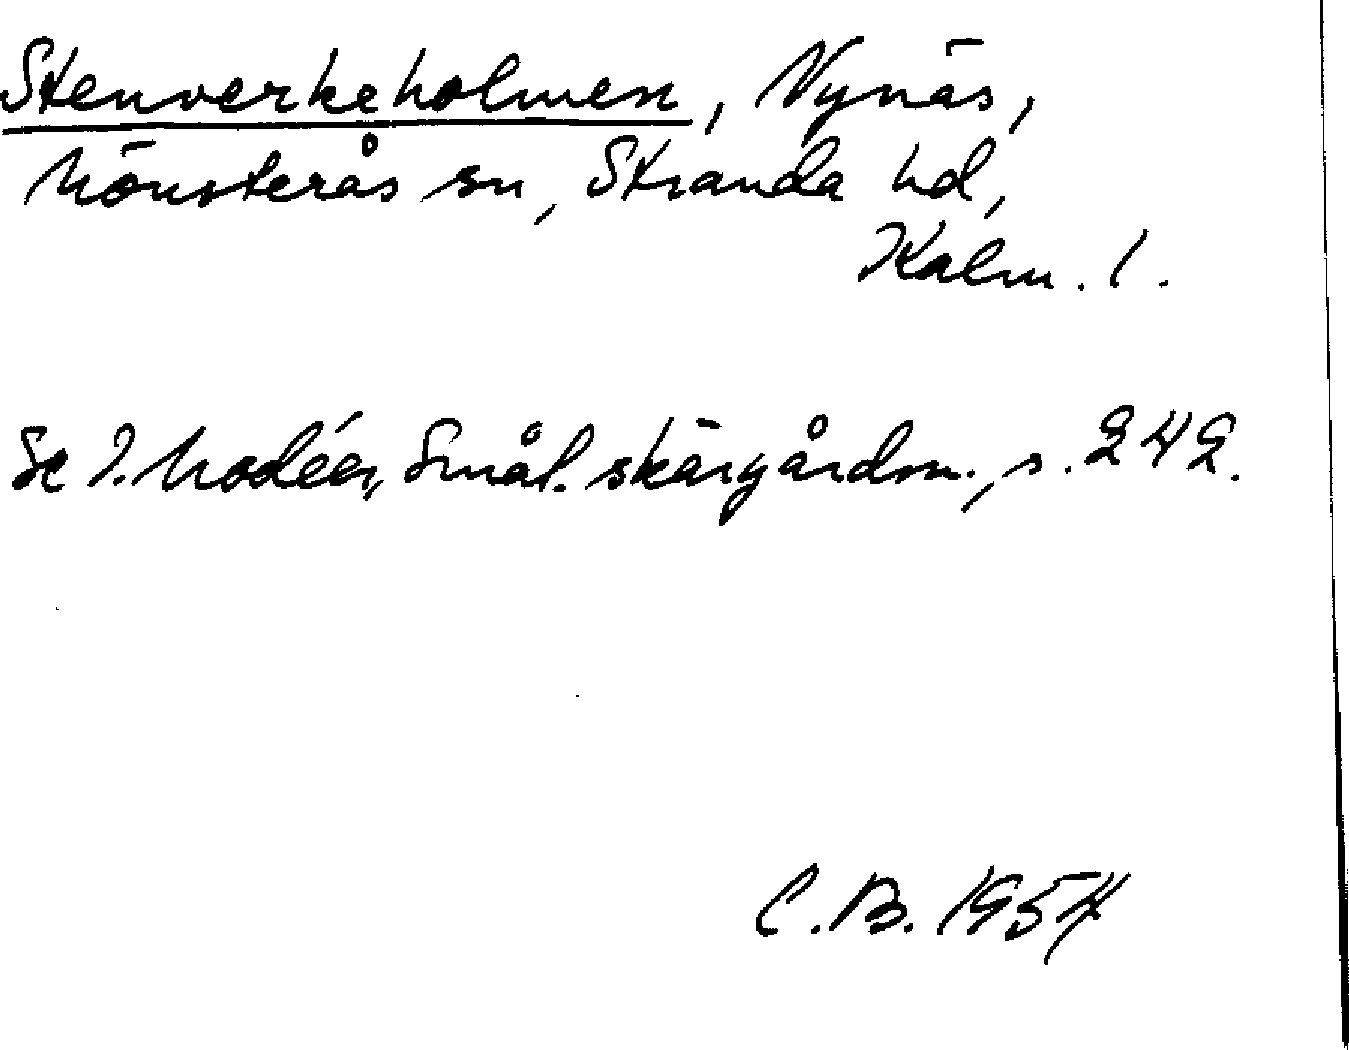 Stenverkeholmen, Nynäs,
Mönsterås sn, Stranda hd,
Kalm. l.
Se I. Modéer, Smål. skärgårdsn., s. 242.
C.B. 1954